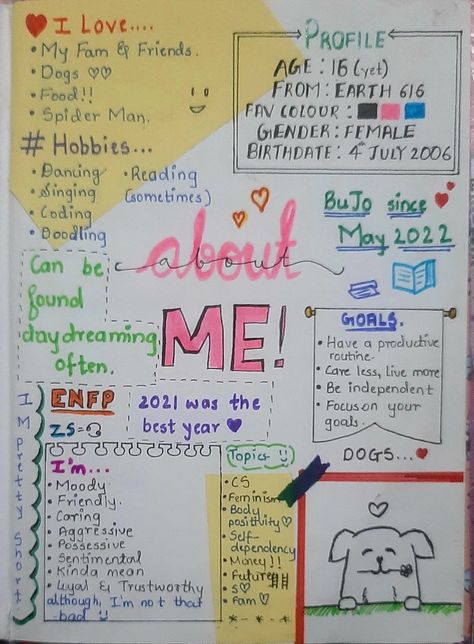 I Love....
• My Fam & Friends.
• Dogs ♡♡
• Food!!
• Spider Man.
# Hobbies...
• Dancing
• Singing
• Coding
• Doodling
• Reading
(sometimes)
PROFILE
AGE : 16 (yet)
FROM : EARTH 616
FAV COLOUR :
GENDER : FEMALE
BIRTHDATE : 4th JULY 2006
BuJo since
May 2022
about
ME!
Can be
found
daydreaming
often.
GOALS.
• Have a productive
routine.
• Care less, Live more
• Be independent
• Focus on your
goals.
ENFP
2021 was the
best year
I M pretty Short
I'm...
• Moody
• Friendly.
• Caring
• Aggressive
• Possessive
• Sentimental
• Kinda mean
• Loyal & Trustworthy
although, I'm not that
bad
Topics
• CS
• Feminism
• Body
positivity ♡
• Self-
dependency
• Money!!
• Future
• S♡
• Fam ♡
DOGS...